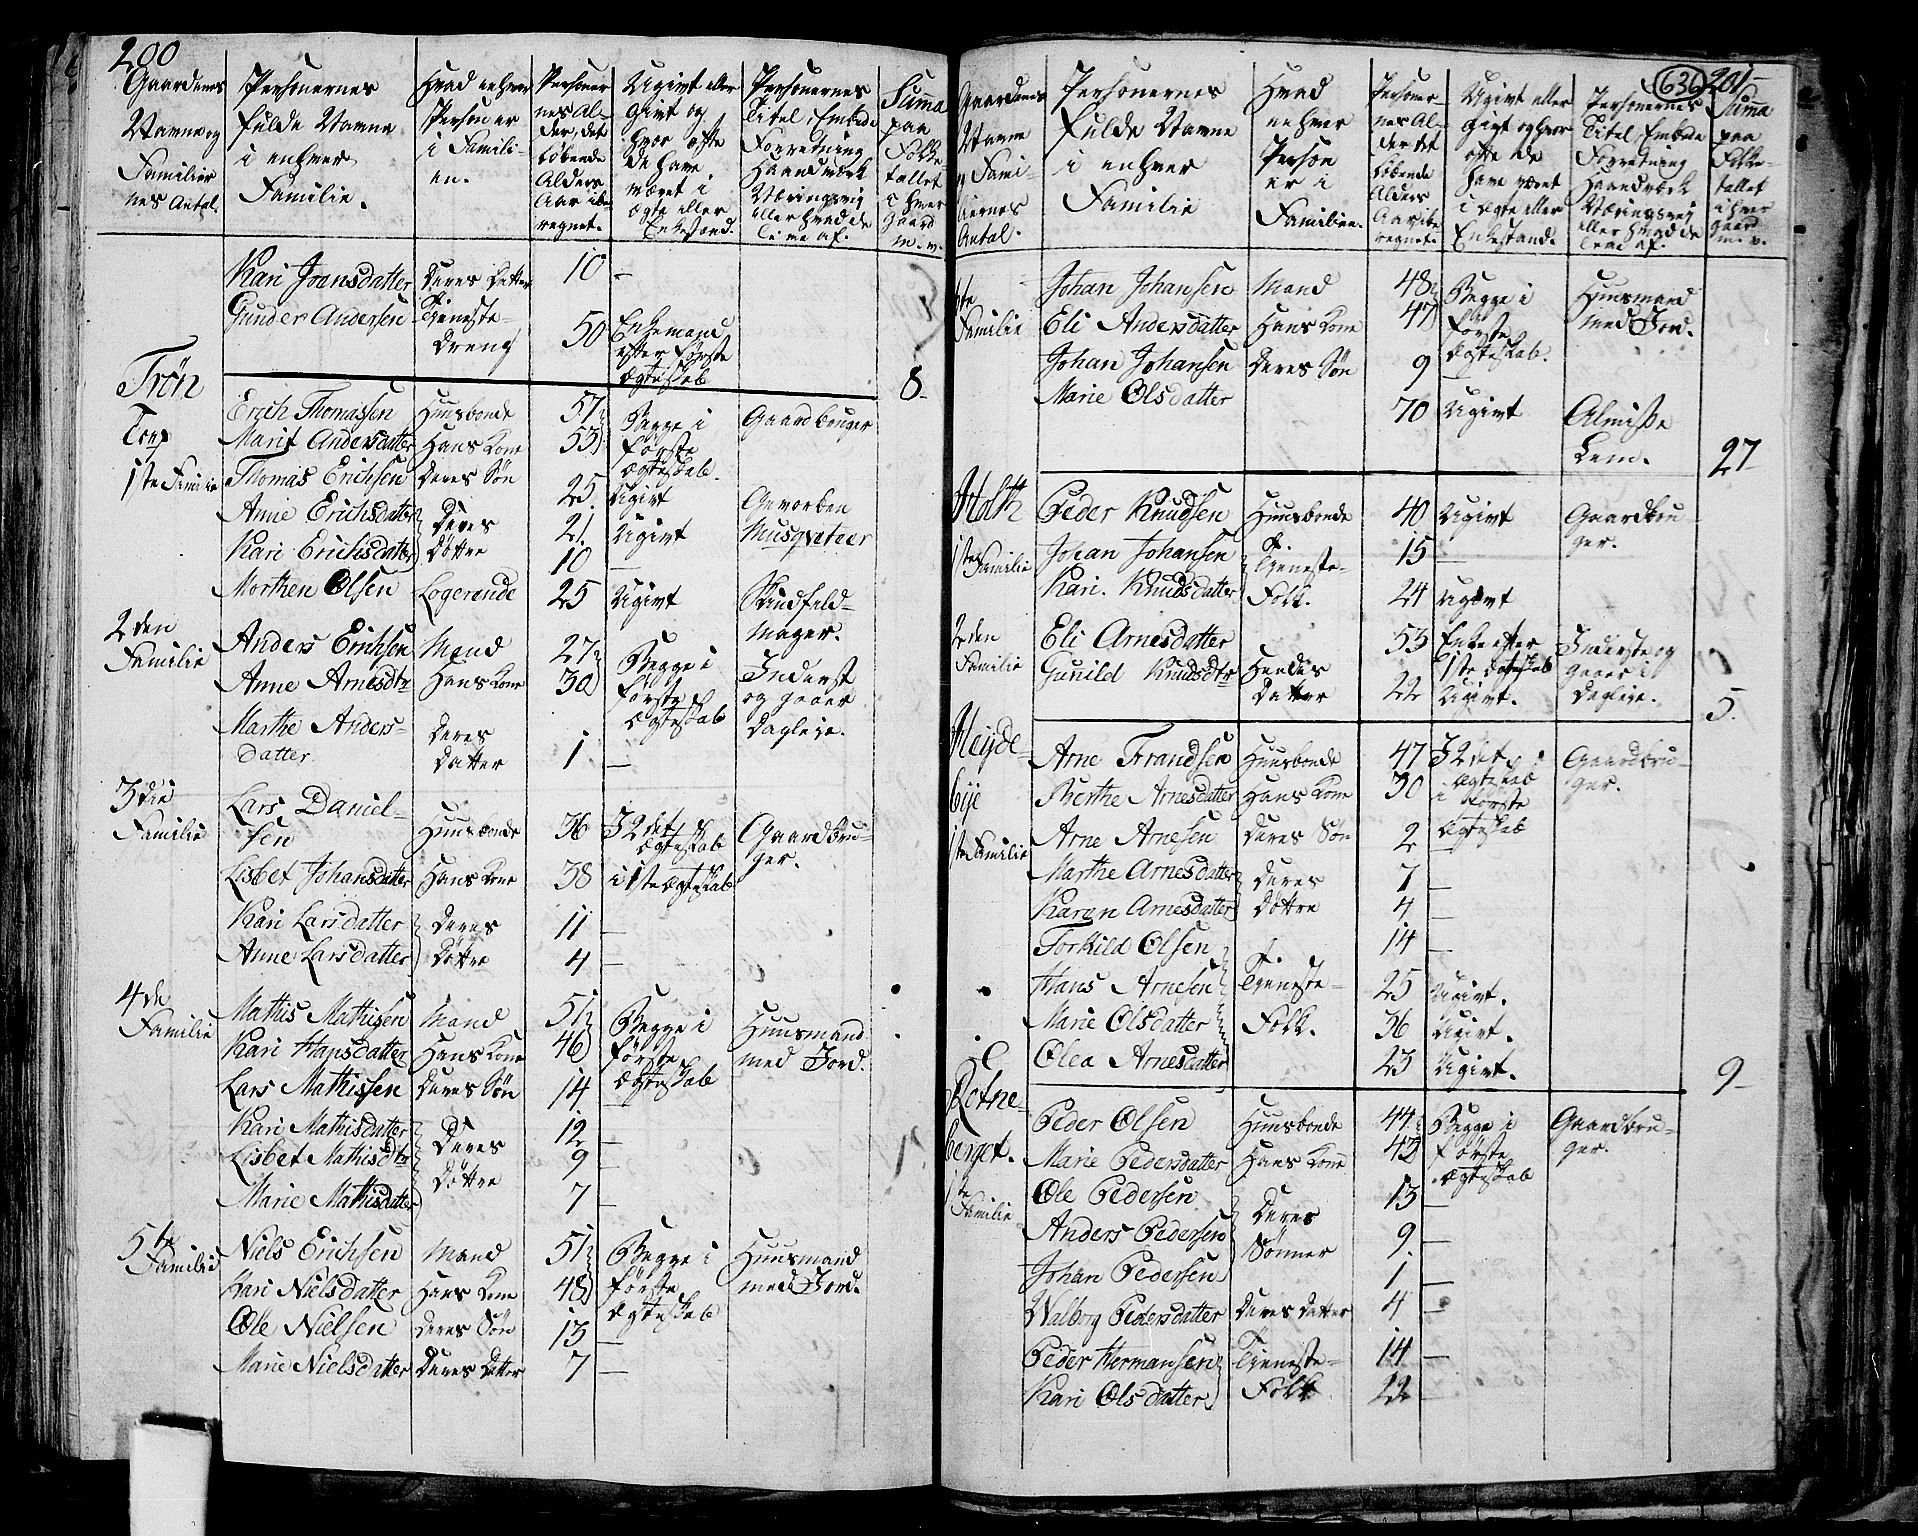 200
Gaardenes Navne og Familiernes Antal. | Personernes fulde Navne i enhver Familie. | Hvad enhver Person er i Familien. | Personernes Alder, det løbende Alders Aar iberegnet. | Ugivt eller givt og hvor ofte de have været i Ægte eller Enkestand. | Personernes Titel, Embede Forretning Haandværk Næringsvej eller hvad de leve af. | Summa paa Folketallet i hver Gaard m. v.
Kari Joansdatter | Deres Datter | 10 | —
Gunder Andersen | Tjeneste-Dreng | 50 | Enkemand efter første Ægteskab
8
Trön Torp
1ste Familie
Erich Thomassen | Huusbonde | 57 | Begge i første Ægteskab. | Gaardbruger
Marit Andersdatter | Hans Kone | 53
Thomas Erichsen | Deres Søn | 25. | Ugivt | Geworben Musqveteer
Anne Erichsdatter | Deres Døttre | 21. | Ugivt
Kari Erichsdatter | 10 | —
Morthen Olsen | Logerende | 25 | Ugivt | Skindfeld-Mager.
2den Familie
Anders Erichsen | Mand | 27 | Begge i første Ægteskab | Inderst og gaaer Dagleje.
Anne Arnesdtr | Hans Kone | 30
Marthe Anders-datter | Deres Datter | 1 | —
3die Familie
Lars Daniel-sen | Huusbonde | 36 | I 2det Ægteskab | Gaardbru-ger.
Lisbet Johansdatter | Hans Kone | 38 | i 1ste Ægteskab
Kari Larsdatter | Deres Døttre | 11 | —
Anne Larsdatter | 4 | —
4de Familie
Mathis Mathisen | Mand | 51 | Begge i første Ægteskab | Huusmand med Jord.
Kari Hansdatter | Hans Kone | 46
Lars Mathissen | Deres Søn | 14 | —
Kari Mathisdatter | Deres Døttre | 12 | —
Lisbet Mathisdtr | 9 | —
Marie Mathisdatter | 7 | —
5te Familie
Niels Erichsen | Mand | 51 | Begge i første Ægteskab | Huusmand med Jord.
Kari Nielsdatter | Hans Kone | 48
Ole Nielsen | Deres Søn | 13 | —
Marie Nielsdatter | Deres Datter | 7 | —
636
201
Gaardens Navne og Familiernes Antal. | Personernes fulde Navne i enhver Familie | Hvad enhver Person er i Familien. | Personernes Alder det løbende Alders Aar iberegnet. | Ugivt eller givt og hvor ofte de have været i Ægte eller Enkestand. | Personernes Titel Embede Forretning Haandværk Næringsvej eller hvad de leve af. | Summa paa Folketallet i hver Gaard m. v.
Familie
Johan Johansen | Mand | 48 | Begge i første Ægteskab. | Huusmand med Jord.
Eli Andersdatter | Hans Kone | 47
Johan Johansen | Deres Søn | 9 | —
Marie Olsdatter | 70 | Ugivt | Almisse Lem.
27
Holth
1ste Familie
Peder Knudsen | Huusbonde | 40 | Ugivt | Gaardbru-ger.
Johan Johansen | Tjeneste-Folk. | 15 | —
Kari Knudsdatter | 24 | Ugivt
2den Familie
Eli Arnesdatter | 53 | Enke efter 1ste Ægteskab | Inderste og gaaer i Dagleje.
Gunild Knudsdtr | Hendes Datter | 22 | Ugivt.
5.
Heyde-bye
1ste Familie
Arne Frandsen | Huusbonde | 47 | I 2det Ægteskab | Gaardbru-ger.
Berthe Arnesdatter | Hans Kone | 30 | i første Ægteskab
Arne Arnesen | Deres Søn | 2
Marthe Arnesdatter | Deres Døttre | 7 | —
Karen Arnesdatter | 4 | —
Torkild Olsen | Tjeneste-Folk. | 14 | —
Hans Arnesen | 25 | Ugivt.
Marie Olsdatter | 36 | Ugivt.
Olea Arnesdatter | 23 | Ugivt.
9
Rotne-berget.
Familie
Peder Olsen | Huusbonde | 44 | Begge i første Ægteskab | Gaardbru-ger.
Marie Pedersdatter | Hans Kone | 42
Ole Pedersen | Deres Sønner | 13 | —
Anders Pedersen | 9 | —
Johan Pedersen | 1 | —
Walborg Pedersdatter | Deres Datter | 4 | —
Peder Hermansen | Tjeneste-Folk | 14 | —
Kari Olsdatter | 22 | —